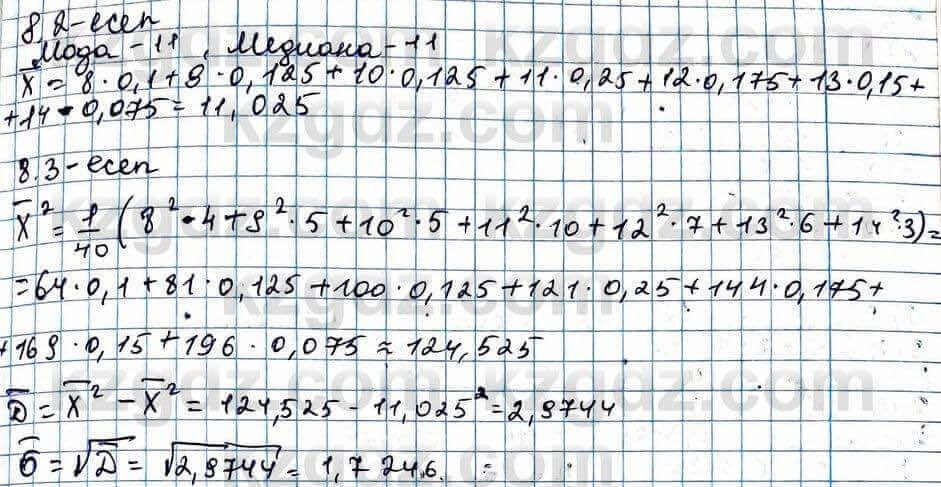 8,2-есеп
Мода - 11, Медиана - 11
X̄ = 8·0,1+9·0,125+10·0,125+11·0,25+12·0,175+13·0,15+
+14·0,075=11,025
8.3-есеп
X̄² = 1/40 (8²·4+9²·5+10²·5+11²·10+12²·7+13²·6+14²·3)=
=64·0,1+81·0,125+100·0,125+121·0,25+144·0,175+
+169·0,15+196·0,075≈124,525
D̄ = X̄² - X̄² = 124,525 - 11,025² = 2,9744
σ̄ = √D̄ = √2,9744 = 1,7246.
kzgdz.com